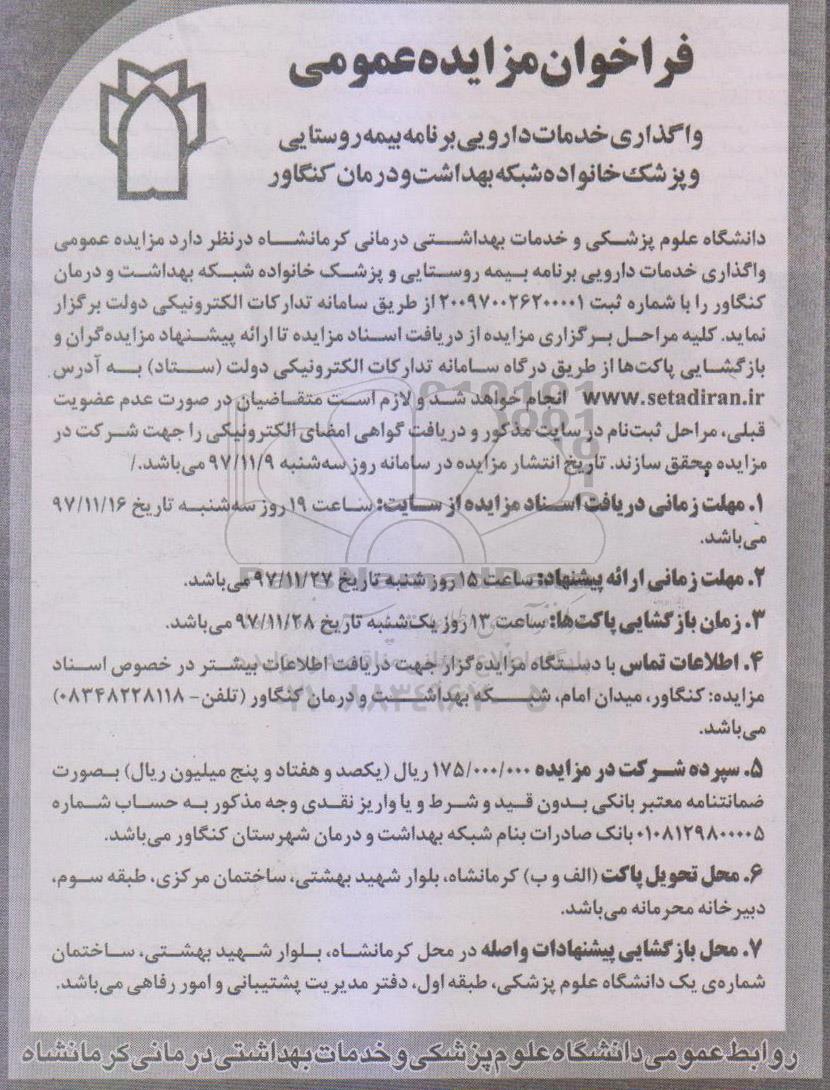 فراخوان مزایده عمومی
واگذاری خدمات دارویی برنامه بیمه روستایی
و پزشک خانواده شبکه بهداشت و درمان کنگاور
دانشگاه علوم پزشکی و خدمات بهداشتی درمانی کرمانشاه درنظر دارد مزایده عمومی
واگذاری خدمات دارویی برنامه بیمه روستایی و پزشک خانواده شبکه بهداشت و درمان
کنگاور را با شماره ثبت ۲۰۰۹۷۰۰۲۶۲۰۰۰۰۱ از طریق سامانه تدارکات الکترونیکی دولت برگزار
نماید. کلیه مراحل برگزاری مزایده از دریافت اسناد مزایده تا ارائه پیشنهاد مزایده‌گران و
بازگشایی پاکت‌ها از طریق درگاه سامانه تدارکات الکترونیکی دولت (ستاد) به آدرس
www.setadiran.ir انجام خواهد شد و لازم است متقاضیان در صورت عدم عضویت
قبلی، مراحل ثبت‌نام در سایت مذکور و دریافت گواهی امضای الکترونیکی را جهت شرکت در
مزایده محقق سازند. تاریخ انتشار مزایده در سامانه روز سه‌شنبه ۹۷/۱۱/۹ می‌باشد./
۱. مهلت زمانی دریافت اسناد مزایده از سایت: ساعت ۱۹ روز سه‌شنبه تاریخ ۹۷/۱۱/۱۶
می‌باشد.
۲. مهلت زمانی ارائه پیشنهاد: ساعت ۱۵ روز شنبه تاریخ ۹۷/۱۱/۲۷ می‌باشد.
۳. زمان بازگشایی پاکت‌ها: ساعت ۱۳ روز یک‌شنبه تاریخ ۹۷/۱۱/۲۸ می‌باشد.
۴. اطلاعات تماس با دستگاه مزایده‌گزار جهت دریافت اطلاعات بیشتر در خصوص اسناد
مزایده: کنگاور، میدان امام، شبکه بهداشت و درمان کنگاور (تلفن- ۰۸۳۴۸۲۲۸۱۱۸)
می‌باشد.
۵. سپرده شرکت در مزایده ۱۷۵/۰۰۰/۰۰۰ ریال (یکصد و هفتاد و پنج میلیون ریال) بصورت
ضمانتنامه معتبر بانکی بدون قید و شرط و یا واریز نقدی وجه مذکور به حساب شماره
۰۱۰۸۱۲۹۸۰۰۰۰۵ بانک صادرات بنام شبکه بهداشت و درمان شهرستان کنگاور می‌باشد.
۶. محل تحویل پاکت (الف و ب) کرمانشاه، بلوار شهید بهشتی، ساختمان مرکزی، طبقه سوم،
دبیرخانه محرمانه می‌باشد.
۷. محل بازگشایی پیشنهادات واصله در محل کرمانشاه، بلوار شهید بهشتی، ساختمان
شماره‌ی یک دانشگاه علوم پزشکی، طبقه اول، دفتر مدیریت پشتیبانی و امور رفاهی می‌باشد.
روابط عمومی دانشگاه علوم پزشکی و خدمات بهداشتی درمانی کرمانشاه